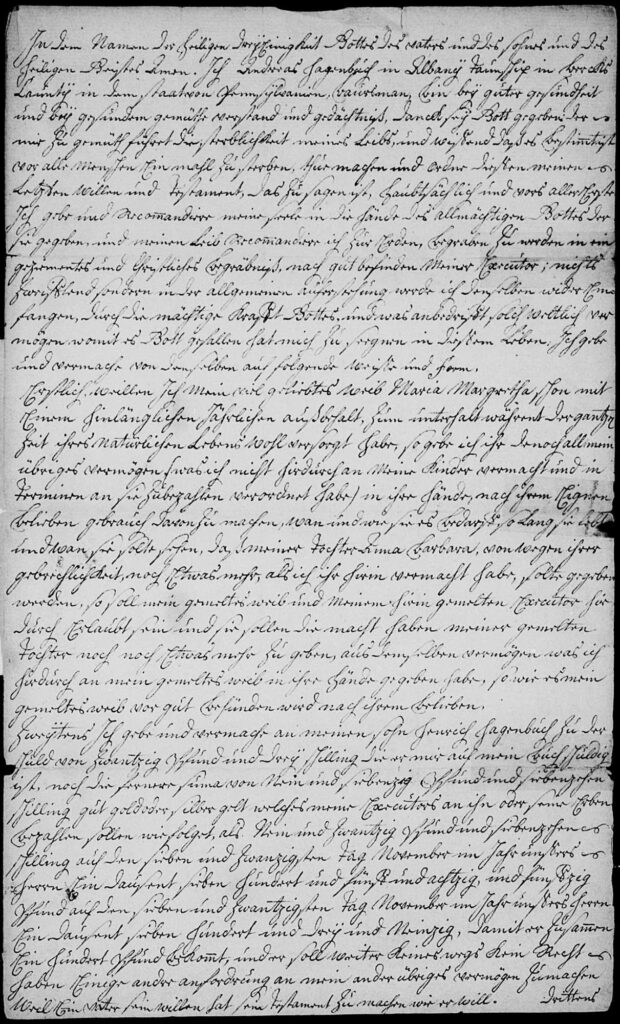 In dem Namen der heiligen dreyEinigkeit Gottes des vaters und des sohns und des
heiligen Geistes Amen. Ich Andreas Hagenbuch in Albany Taunschip in Bercks
Caunty in dem staate von Pennsylvanien, baursman, bin bey guter gesundheit
und bey gesundem gemüthe verstand und gedächtnis, Danck sey Gott gegeben der
mir zu gemüth führet die sterblichkeit meines Leibs, und wissend daß es bestimt ist
vor alle Menschen Ein mahl zu sterben, thue machen und ordne diesen meinen
Letzten willen und testament, das zu sagen ist, haubtsächlich und vors aller Erste
Ich gebe und Recommandire meine seele in die hände des allmächtigen Gottes der
sie gegeben, und meinen Leib Recommandire ich zur Erden, begraben zu werden in ein
geziementes und christliches begräbnis, nach gut befinden Meiner Executor; nichts
zweiflend sondern in der allgemeinen auferstehung werde ich denselben wider Em
fangen, durch die mächtige Krafft Gottes, und was anbedrifft solch weltlich ver
mögen womit es Gott gefallen hat mich zu segnen in diesem Leben, Ich gebe
und vermache von denselben auf folgende weisse und form.
Erstlich, weillen Ich Mein viel geliebtes weib Maria Margretha schon mit
Einem hinlänglichen jährlichen außbehalt, zum unterhalt während der gantze
Zeit ihres Natürlichen Lebens wohl versorgt habe, so gebe ich ihr denoch all mein
übriges vermögen (was ich nicht hirdurch an Meine Kinder vermacht und in
Terminen an sie zu bezahlen verordnet habe) in ihre hände, nach ihrem Eignen
belieben gebrauch davon zu machen, wan und wie sie es bedarff so lang sie lebt
und wan sie solte sehen, daß meiner Tochter Anna Barbara, von wegen ihrer
gebrechlichkeit, noch Etwas mehr, als ich ihr hirin vermacht habe, solte gegeben
werden, so soll mein gemeltes weib und Meinem hirin gemelten Executor hir
durch Erlaubt sein und sie sollen die macht haben meiner gemelten
Tochter noch noch Etwas mehr zu geben, aus demselben vermögen was ich
hirdurch an mein gemeltes weib in ihre hände gegeben habe, so wie es mein
gemeltes weib vor gut befünden wird nach ihrem belieben.
Zweytens Ich gebe und vermache an meinen sohn Henrich Hagenbuch zu der
schuld von zwantzig Pfund und drey schilling die er mir auf mein buch schuldig
ist, noch die fernere suma von Nein und siebenzig Pfund und siebenzehen
schilling gut gold oder silber gelt welches meine Executors an ihn oder seine Erben
bezahlen sollen wie folget, als Nein und zwantzig Pfund und siebenzehen
schilling auf den sieben und zwanzigsten tag November im Jahr unsers
Herren Ein dausent sieben hundert und fünff und achtzig, und fünffzig
Pfund auf den sieben und zwantzigsten tag November im Jahr unsers Herrn
Ein dausent sieben hundert und drey und Neinzig, damit er zusamen
Ein hundert Pfund bekomt, und er soll weiter keines wegs kein Recht
haben Einige andre anfordrung an mein ander übriges vermögen zu machen
Weil Ein vater sein willen hat sein testament zu machen wie er will. Drittens